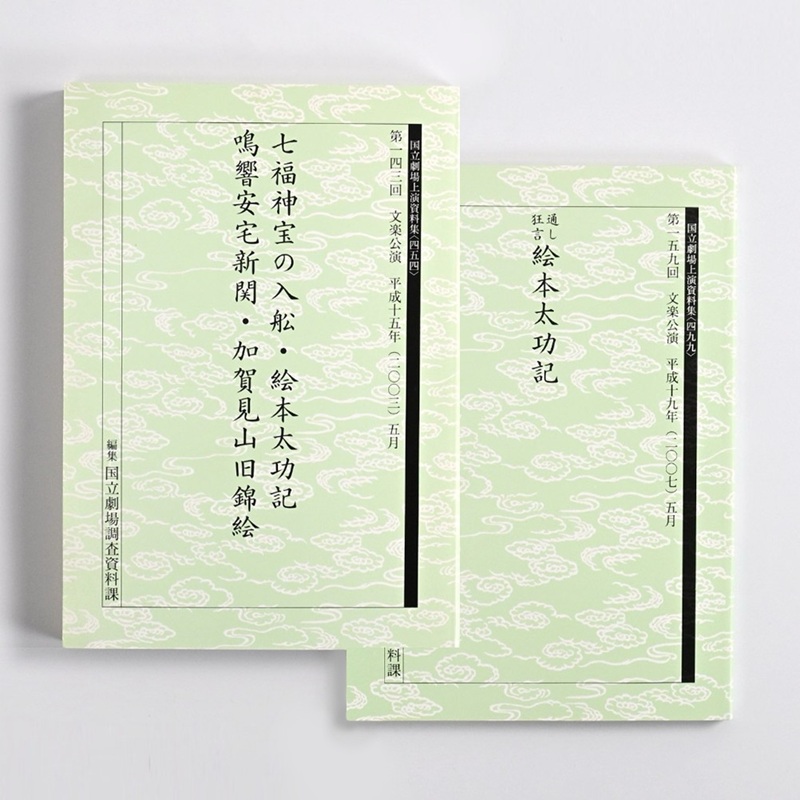 国立劇場上演資料集〈四五四〉
第一四三回 文楽公演 平成十五年(二〇〇三)五月
七福神宝の入舩・絵本太功記
鳴響安宅新関・加賀見山旧錦絵
編集 国立劇場調査資料課
国立劇場上演資料集〈四九九〉
第一五九回 文楽公演 平成十九年(二〇〇七)五月
通し
狂言
絵本太功記
料課